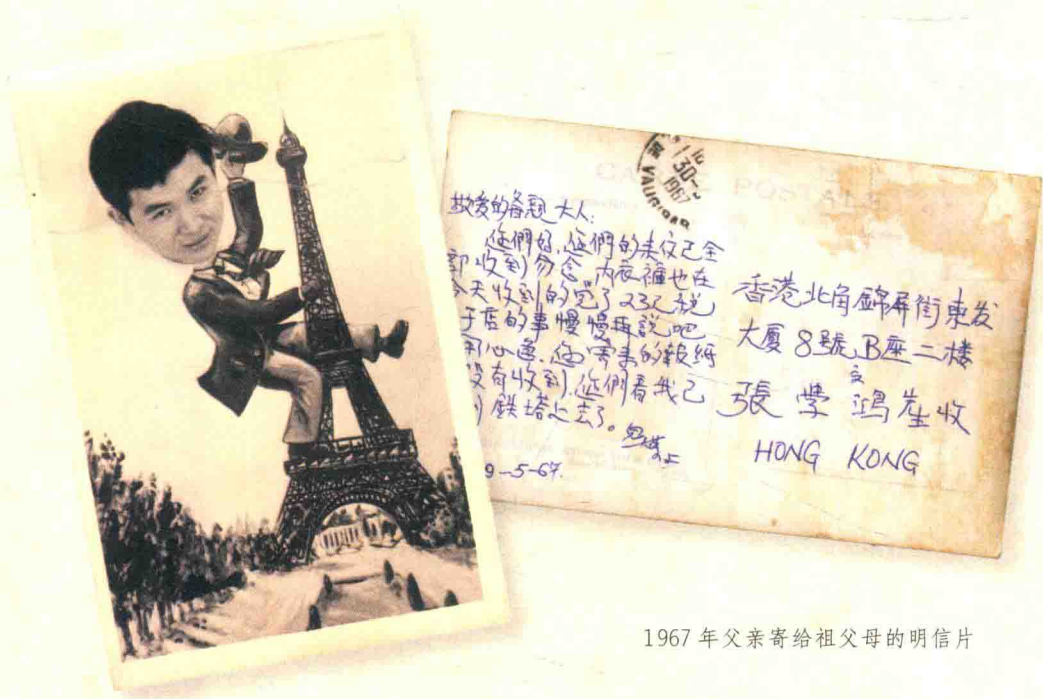 CARTE POSTALE
30-
1967
敬爱的爸媽大人:
您們好,您們的来信已全
部收到勿念,内衣褲也在
今天收到的
店的事慢慢再説吧
用心急,您寄来的報紙
没有收到,您們看我已
鉄塔上去了。
9-5-67.
香港北角錦屏街東发
大厦8號B座二楼
張學鴻先生收
HONG KONG
1967年父亲寄给祖父母的明信片